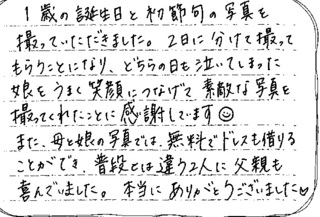 1歳の誕生日と初節句の写真を
撮っていただきました。2日に分けて撮って
もらうことになり、どちらの日も泣いてしまった
娘をうまく笑顔につなげて素敵な写真を
撮ってくれたことに感謝しています☺
また、母と娘の写真では、無料でドレスも借りる
ことができ、普段とは違う2人に父親も
喜んでいました。本当にありがとうございました♡